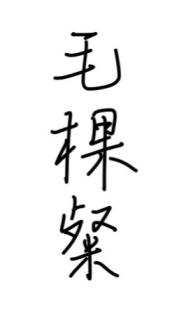 毛棵粲